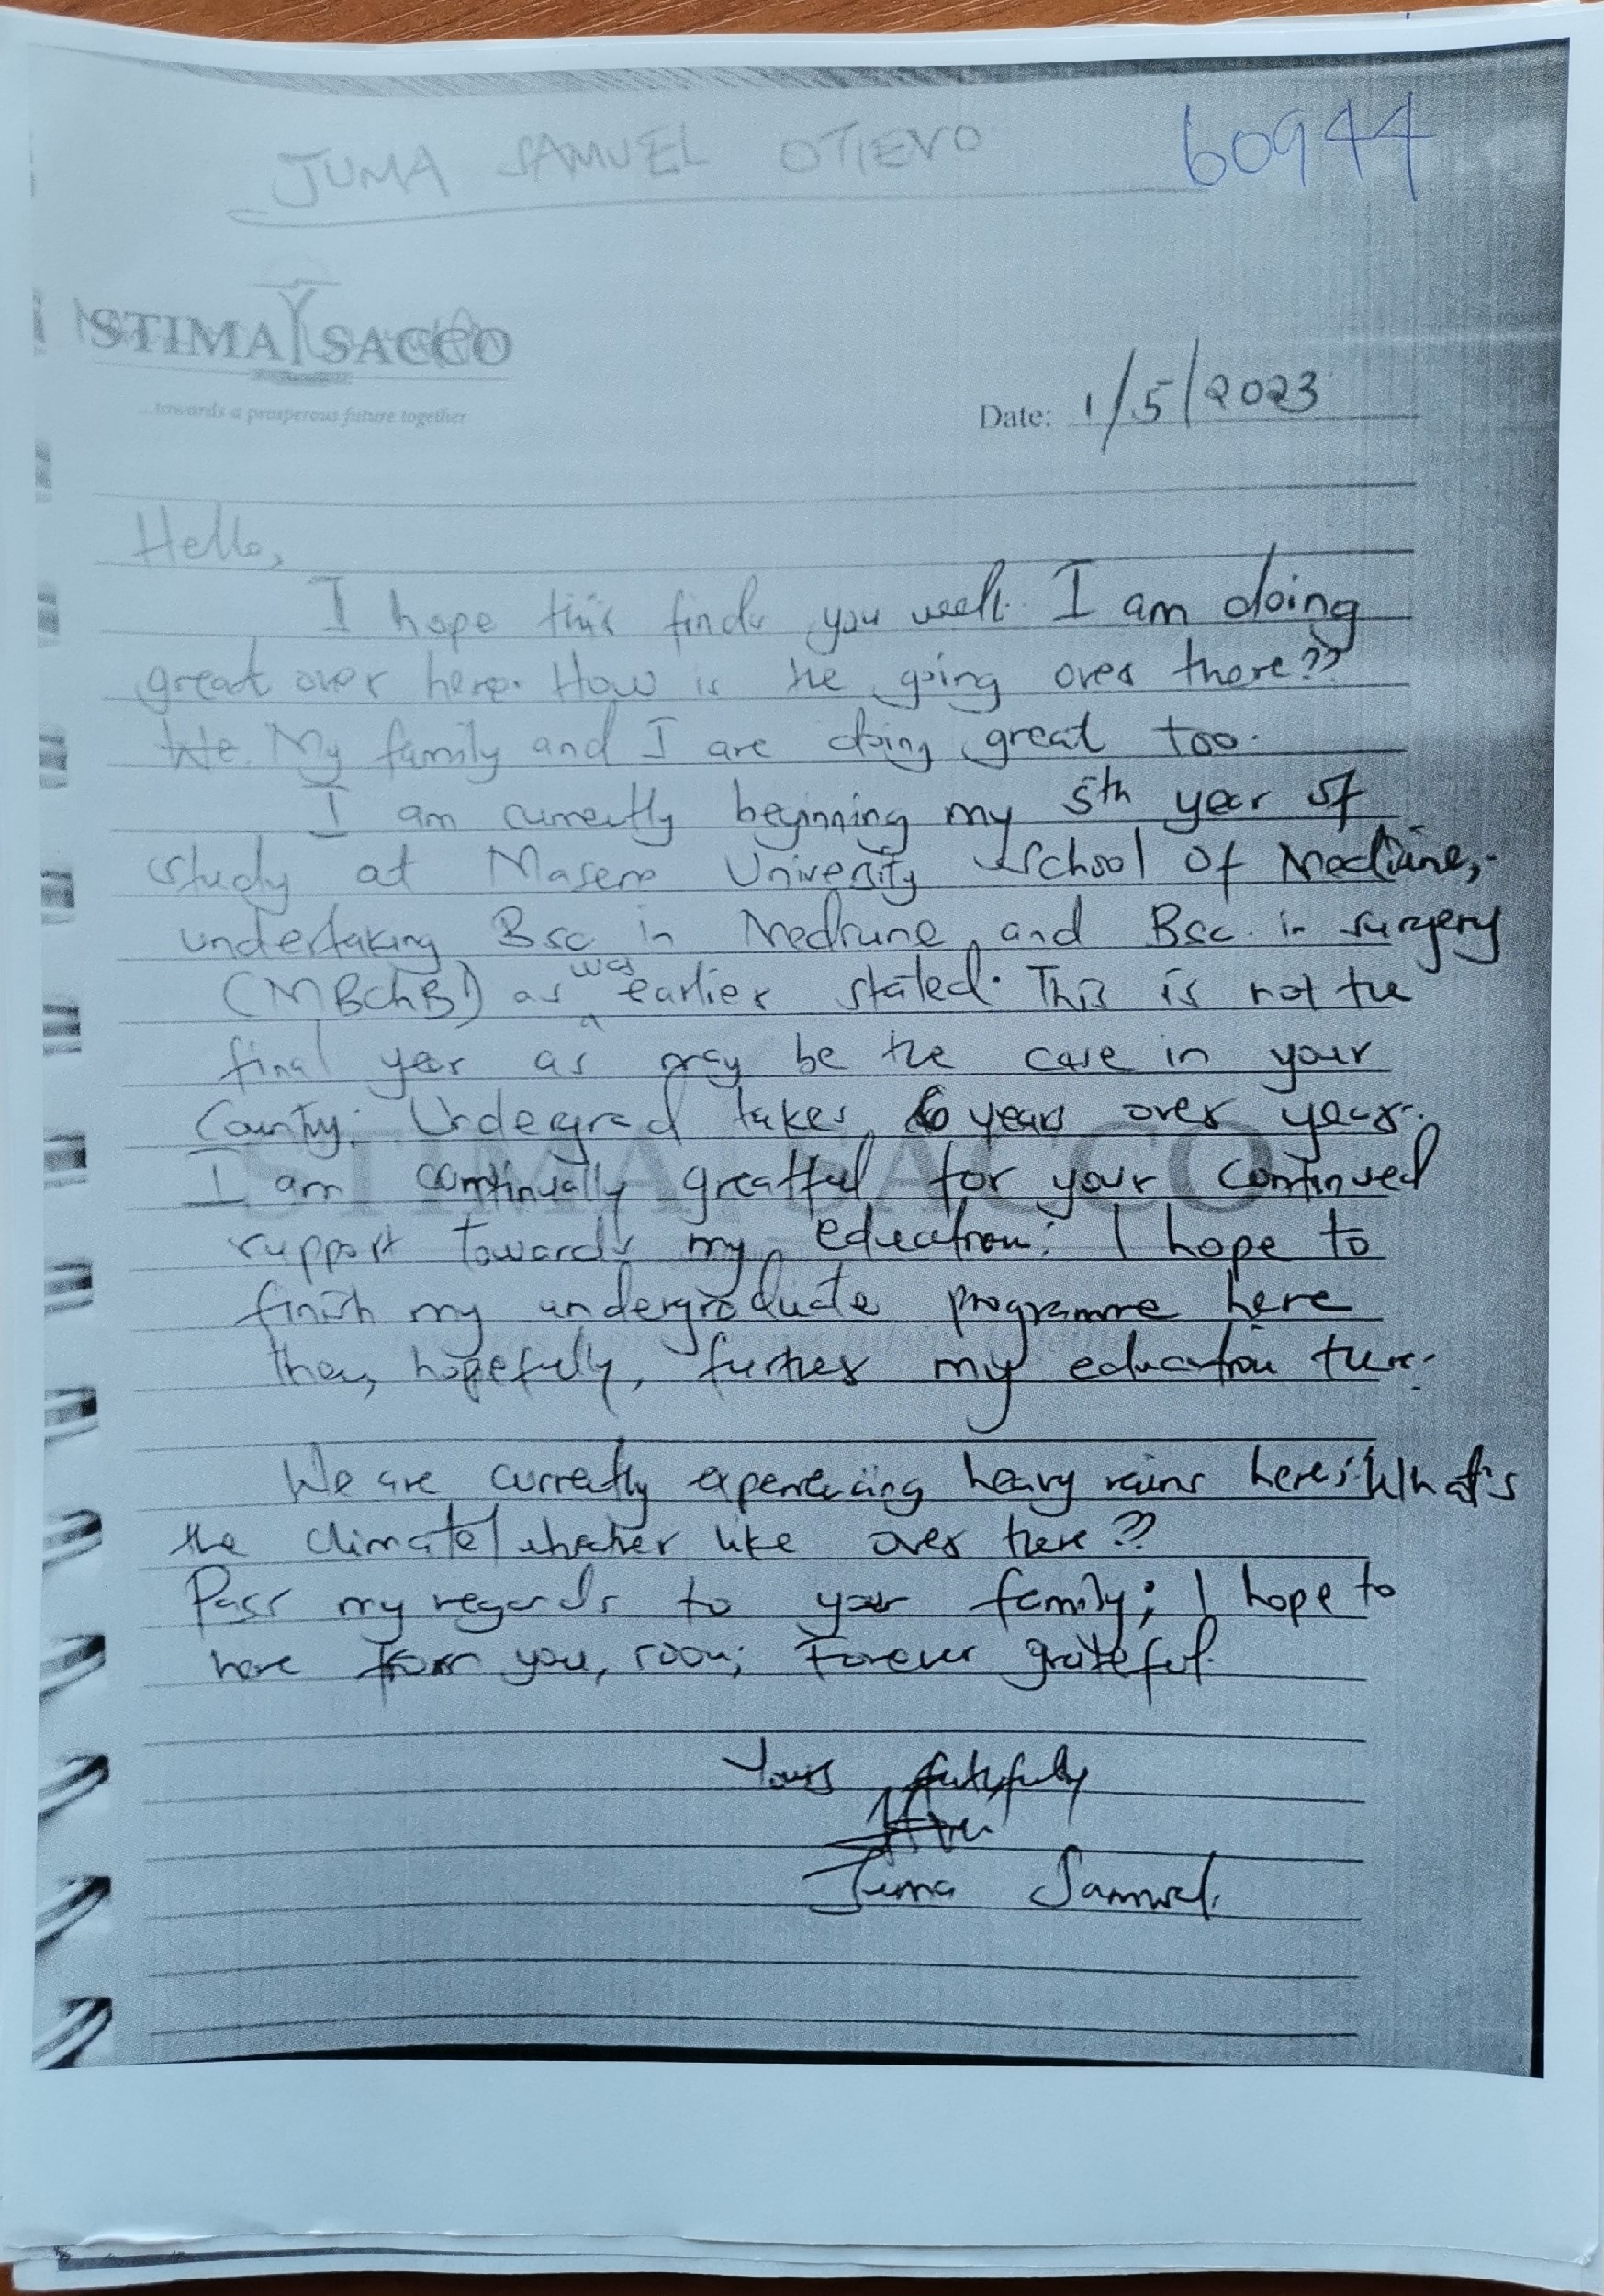 JUMA SAMUEL OTIENO 60944
STIMA SACCO
...towards a prosperous future together
Date: 1/5/2023
Hello,
I hope this finds you well. I am doing
great over here. How is the going over there??
We. My family and I are doing great too.
I am currently beginning my 5th year of
study at Maseno University School Of Medicine,
undertaking Bsc in Medicine and Bsc. in surgery
(MBChB) as was earlier stated. This is not the
final year as may be the case in your
County. Undergrad takes 6 years over year.
I am continually greatful for your continued
support towards my education. I hope to
finish my undergraduate programme here
then, hopefully, further my education there.
We are currently experiencing heavy rains here; What's
the climate/wheather like over there??
Pass my regards to your family; I hope to
here from you, soon; Forever grateful.
Yours faithfully
Juma Samuel.
STIMA SACCO